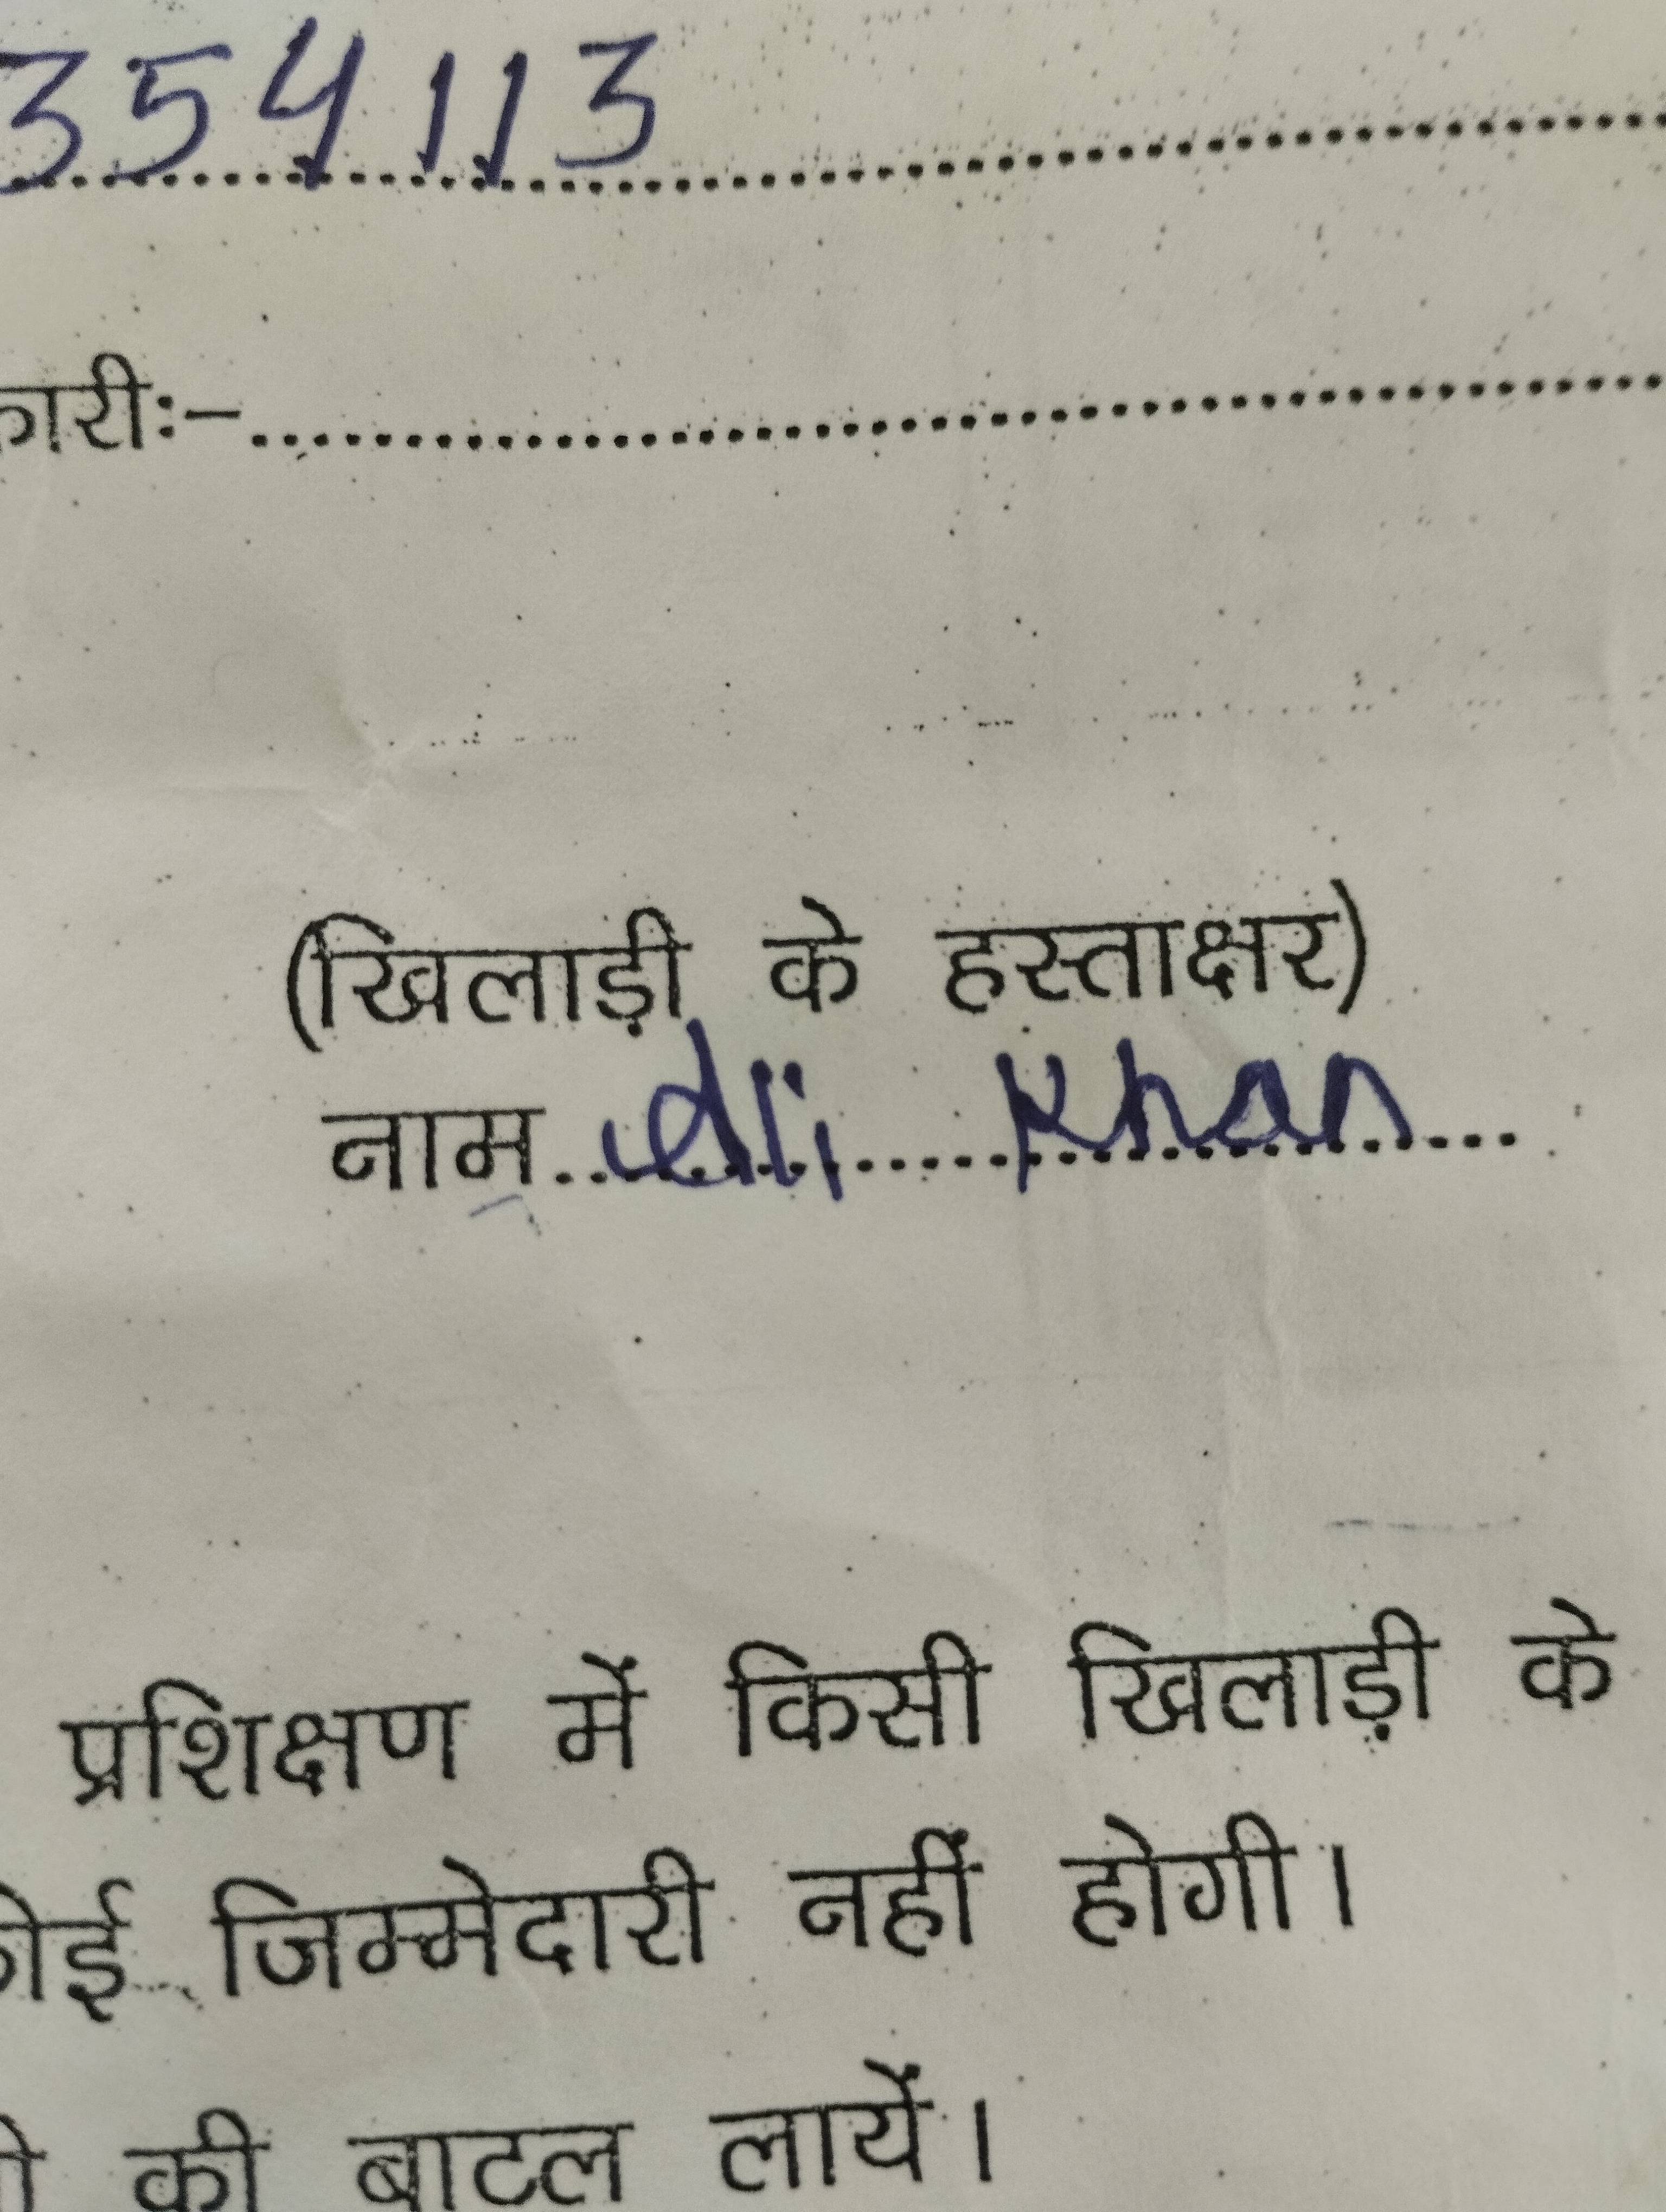 354113
कारीः–
(खिलाड़ी के हस्ताक्षर)
नाम Ali Khan
प्रशिक्षण में किसी खिलाड़ी के
कोई जिम्मेदारी नहीं होगी।
की बाटल लायें।